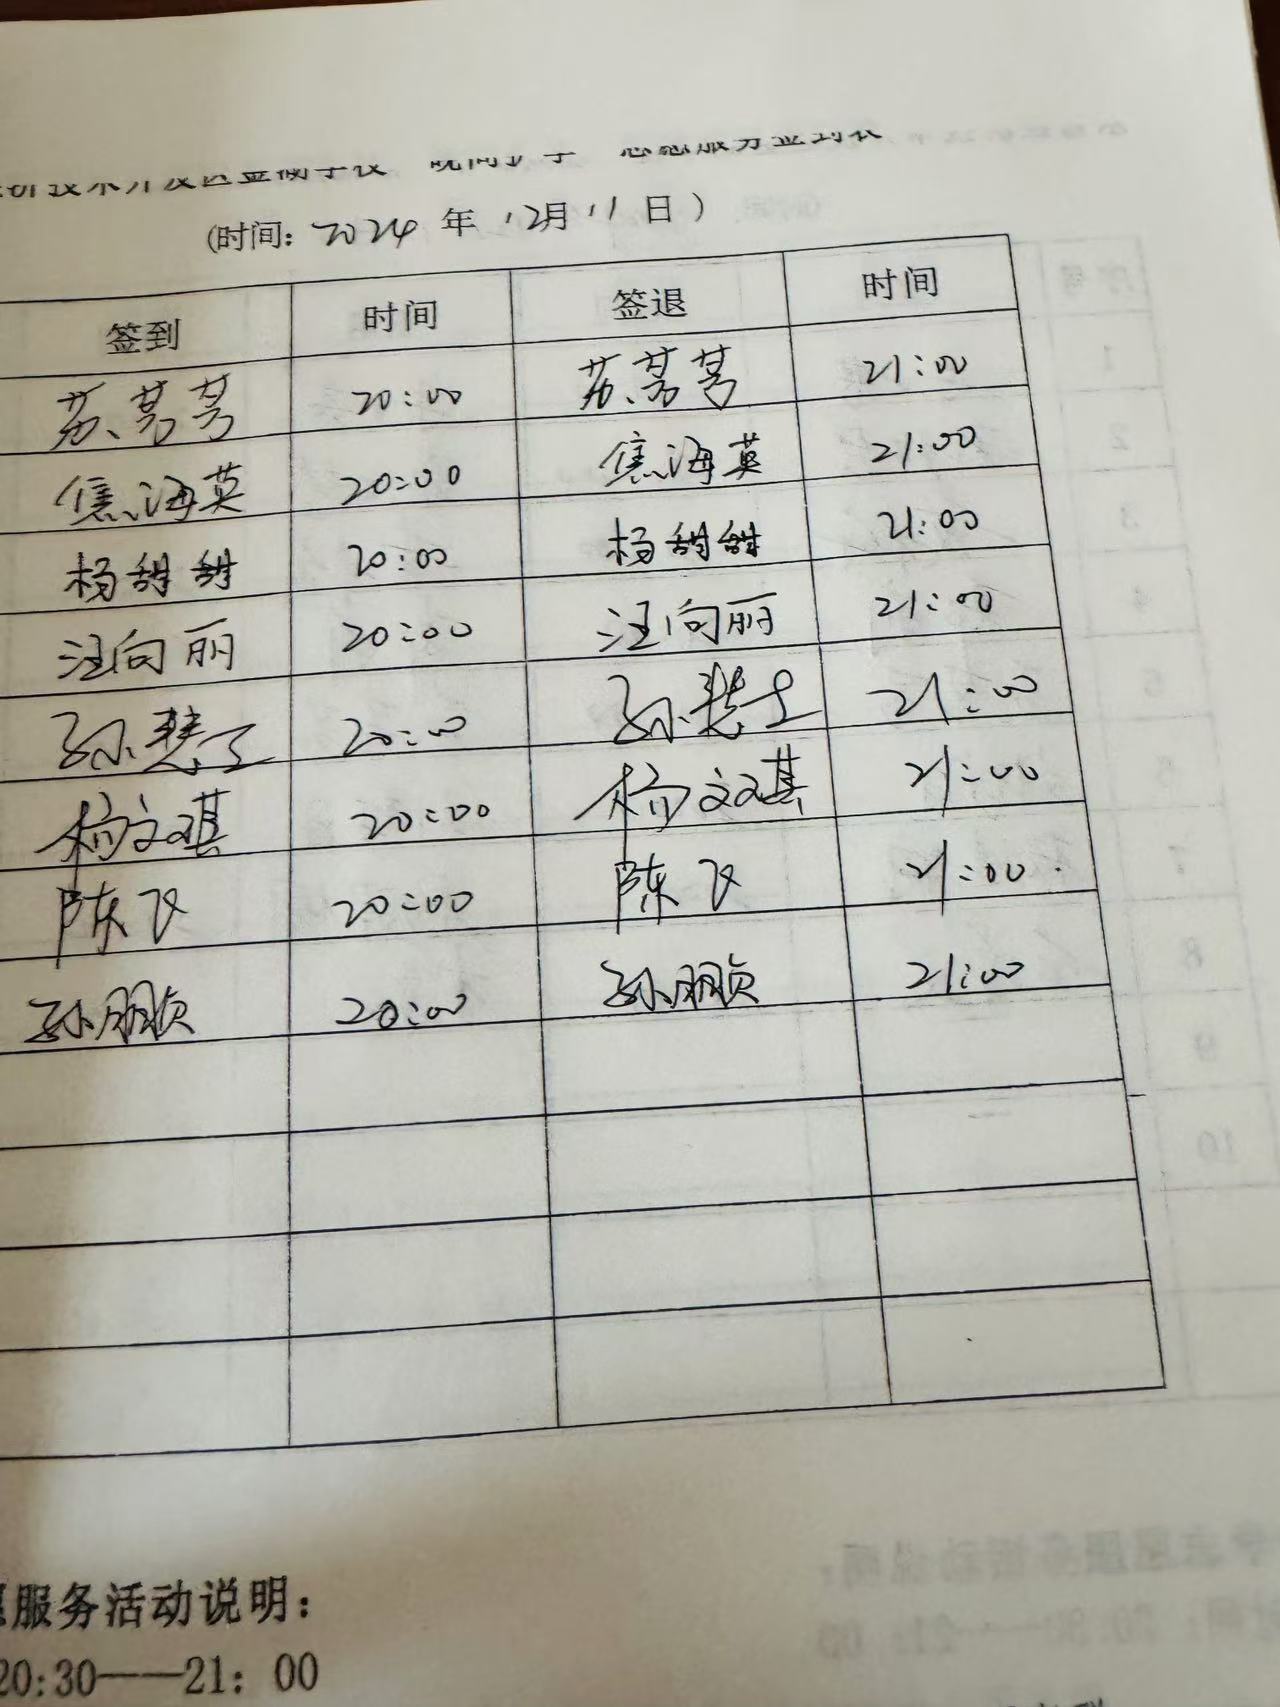 (时间: 2024 年 12月 11 日 )
签到 时间 签退 时间
20:00 21:00
焦海英 20:00 焦海英 21:00
杨甜甜 20:00 杨甜甜 21:00
汪向丽 20:00 汪向丽 21:00
孙慧 20:00 孙慧 21:00
杨文琪 20:00 杨文琪 21:00
陈飞 20:00 陈飞 21:00
孙鹏贞 20:00 孙鹏贞 21:00
服务活动说明:
20:30——21: 00